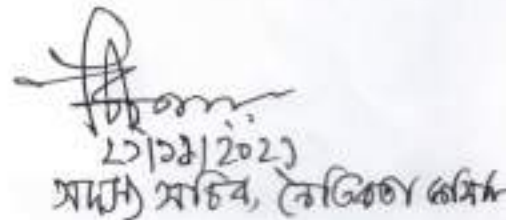 ২১|১১|২০২১
সদস্য সচিব, নৈতিকতা কমিটি